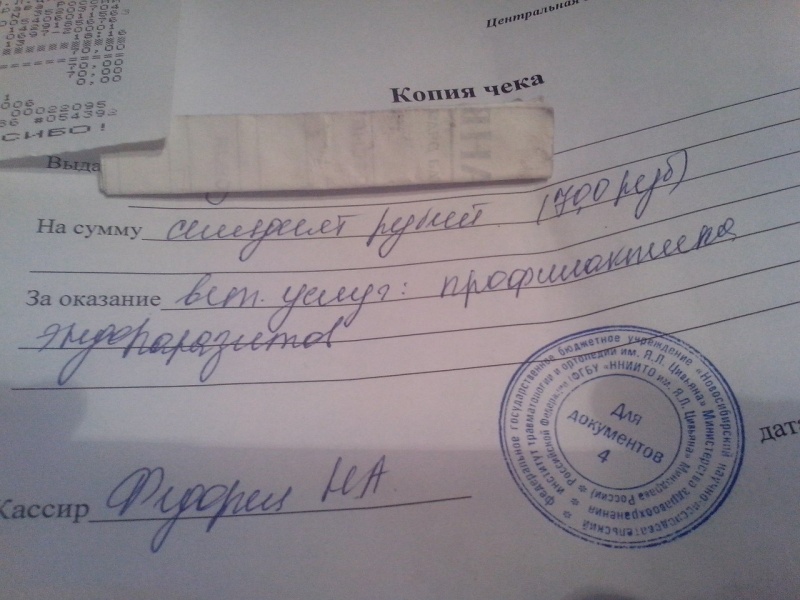 70,00
70,00
0,00
00022095
#054392
СИБО!
Центральная
Копия чека
Выда
На сумму семьдесят рублей (70,0 руб)
За оказание вет. услуг: профилактика
эндопаразитов
Федеральное государственное бюджетное учреждение «Новосибирский научно-исследовательский
институт травматологии и ортопедии им. Я.Л. Цивьяна» Министерства здравоохранения
Российской Федерации (ФГБУ «ННИИТО им. Я.Л. Цивьяна» Минздрава России)
Для
документов
4
дата
Кассир Федорец НА.